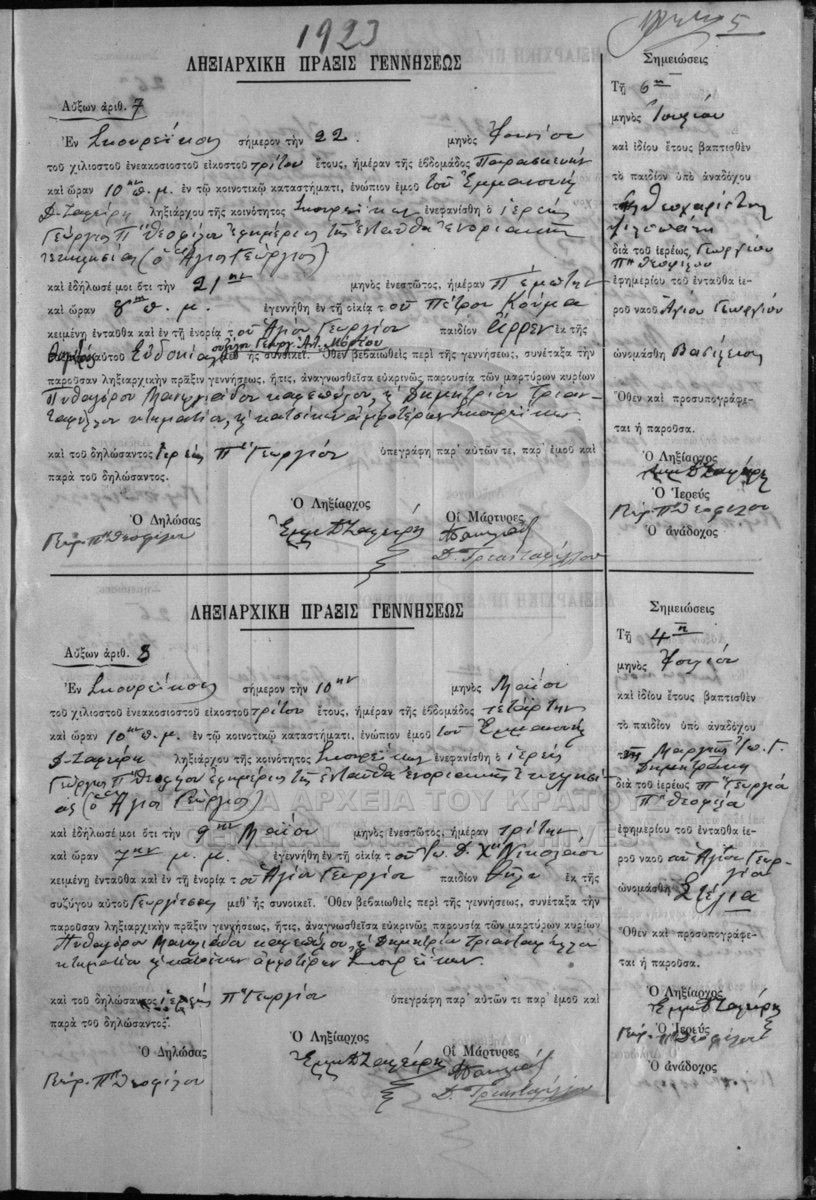 1923
5
ΛΗΞΙΑΡΧΙΚΗ ΠΡΑΞΙΣ ΓΕΝΝΗΣΕΩΣ
Αὔξων ἀριθ. 7
Ἐν Σκουρεΐκοις σήμερον τὴν 22 μηνὸς Ἰουνίου
τοῦ χιλιοστοῦ ἐνεακοσιοστοῦ εἰκοστοῦ τρίτου ἔτους, ἡμέραν τῆς ἑβδομάδος Παρασκευὴν
καὶ ὥραν 10ην π. μ. ἐν τῷ κοινοτικῷ καταστήματι, ἐνώπιον ἐμοῦ τοῦ Ἐμμανουὴλ
Δ. Ζαφείρη ληξιάρχου τῆς κοινότητος Σκουρεΐκων ἐνεφανίσθη ὁ ἱερεὺς
Γεώργιος Π Θεοφίλου ἐφημέριος τῆς ἐνταῦθα ἐνοριακῆς
ἐκκλησίας (ὁ Ἅγιος Γεώργιος)
καὶ ἐδήλωσέ μοι ὅτι τὴν 21ην μηνὸς ἐνεστῶτος, ἡμέραν Πέμπτην
καὶ ὥραν π. μ. ἐγεννήθη ἐν τῇ οἰκίᾳ τοῦ Πέτρου Κούμα
κειμένῃ ἐνταῦθα καὶ ἐν τῇ ἐνορίᾳ τοῦ Ἁγίου Γεωργίου παιδίον ἄρρεν ἐκ τῆς
αὐτοῦ Εὐδοκίας συζύγου Γεωργ. ἧς συνοικεῖ. Ὅθεν βεβαιωθεὶς περὶ τῆς γεννήσεως, συνέταξα τὴν
παροῦσαν ληξιαρχικὴν πρᾶξιν γεννήσεως, ἥτις, ἀναγνωσθεῖσα εὐκρινῶς παρουσίᾳ τῶν μαρτύρων κυρίων
Πυθαγόρου καφεπώλου, κ Δημητρίου Τριαν-
ταφύλλου κτηματίου, κ κατοίκων ἀμφοτέρων Σκουρεΐκων.
καὶ τοῦ δηλώσαντος ἱερέως Π Γεωργίου ὑπεγράφη παρ' αὐτῶν τε, παρ' ἐμοῦ καὶ
παρὰ τοῦ δηλώσαντος.
Ὁ Ληξίαρχος
Ὁ Δηλώσας
Οἱ Μάρτυρες
Γεώρ. Π Θεοφίλου
Ἐμμ Δ Ζαφείρης
Δ. Τριανταφύλλου
Σημειώσεις
Τῇ 6ῃ
μηνὸς Ἰουλίου
καὶ ἰδίου ἔτους βαπτισθὲν
τὸ παιδίον ὑπὸ ἀναδόχου
διὰ τοῦ ἱερέως, Γεωργίου
Π Θεοφίλου
ἐφημερίου τοῦ ἐνταῦθα ἱε-
ροῦ ναοῦ Ἁγίου Γεωργίου
ὠνομάσθη Βασίλειος
Ὅθεν καὶ προσυπογράφε-
ται ἡ παροῦσα.
Ὁ Ληξίαρχος
Ἐμμ Δ Ζαφείρης
Ὁ Ἱερεὺς
Γεώρ. Π Θεοφίλου
Ὁ ἀνάδοχος
ΛΗΞΙΑΡΧΙΚΗ ΠΡΑΞΙΣ ΓΕΝΝΗΣΕΩΣ
Αὔξων ἀριθ.
Ἐν Σκουρεΐκοις σήμερον τὴν 10ην μηνὸς Μαΐου
τοῦ χιλιοστοῦ ἐνεακοσιοστοῦ εἰκοστοῦ τρίτου ἔτους, ἡμέραν τῆς ἑβδομάδος τετάρτην
καὶ ὥραν 10ην π. μ. ἐν τῷ κοινοτικῷ καταστήματι, ἐνώπιον ἐμοῦ τοῦ Ἐμμανουὴλ
Δ. Ζαφείρη ληξιάρχου τῆς κοινότητος Σκουρεΐκων ἐνεφανίσθη ὁ ἱερεὺς
Γεώργιος Π Θεοφίλου ἐφημέριος τῆς ἐνταῦθα ἐνοριακῆς ἐκκλησί-
ας (ὁ Ἅγιος Γεώργιος)
ΓΕΝΙΚΑ ΑΡΧΕΙΑ ΤΟΥ ΚΡΑΤΟΥΣ
καὶ ἐδήλωσέ μοι ὅτι τὴν 9ην Μαΐου μηνὸς ἐνεστῶτος, ἡμέραν τρίτην
καὶ ὥραν 7ην μ. μ. ἐγεννήθη ἐν τῇ οἰκίᾳ τοῦ Ἰω. Δ. Χ Νικολάου
κειμένῃ ἐνταῦθα καὶ ἐν τῇ ἐνορίᾳ τοῦ Ἁγίου Γεωργίου παιδίον θῆλυ ἐκ τῆς
συζύγου αὐτοῦ Γεωργίτσας μεθ' ἧς συνοικεῖ. Ὅθεν βεβαιωθεὶς περὶ τῆς γεννήσεως, συνέταξα τὴν
παροῦσαν ληξιαρχικὴν πρᾶξιν γεννήσεως, ἥτις, ἀναγνωσθεῖσα εὐκρινῶς παρουσίᾳ τῶν μαρτύρων κυρίων
Πυθαγόρου καφεπώλου, κ Δημητρίου Τριανταφύλλου
κτηματίου κ κατοίκων ἀμφοτέρων Σκουρεΐκων.
καὶ τοῦ δηλώσαντος ἱερέως Π Γεωργίου ὑπεγράφη παρ' αὐτῶν τε παρ' ἐμοῦ καὶ
παρὰ τοῦ δηλώσαντος.
Ὁ Ληξίαρχος
Ὁ Δηλώσας
Οἱ Μάρτυρες
Γεώρ. Π Θεοφίλου
Ἐμμ Δ Ζαφείρης
Δ. Τριανταφύλλου
Σημειώσεις
Τῇ 4ῃ
μηνὸς Ἰουλίου
καὶ ἰδίου ἔτους βαπτισθὲν
τὸ παιδίον ὑπὸ ἀναδόχου
διὰ τοῦ ἱερέως Π Γεωργίου
Π Θεοφίλου
ἐφημερίου τοῦ ἐνταῦθα ἱε-
ροῦ ναοῦ Ἁγίου Γεωρ-
γίου
ὠνομάσθη Στέλια
Ὅθεν καὶ προσυπογράφε-
ται ἡ παροῦσα.
Ὁ Ληξίαρχος
Ἐμμ Δ Ζαφείρης
Ὁ Ἱερεὺς
Γεώρ. Π Θεοφίλου
Ὁ ἀνάδοχος